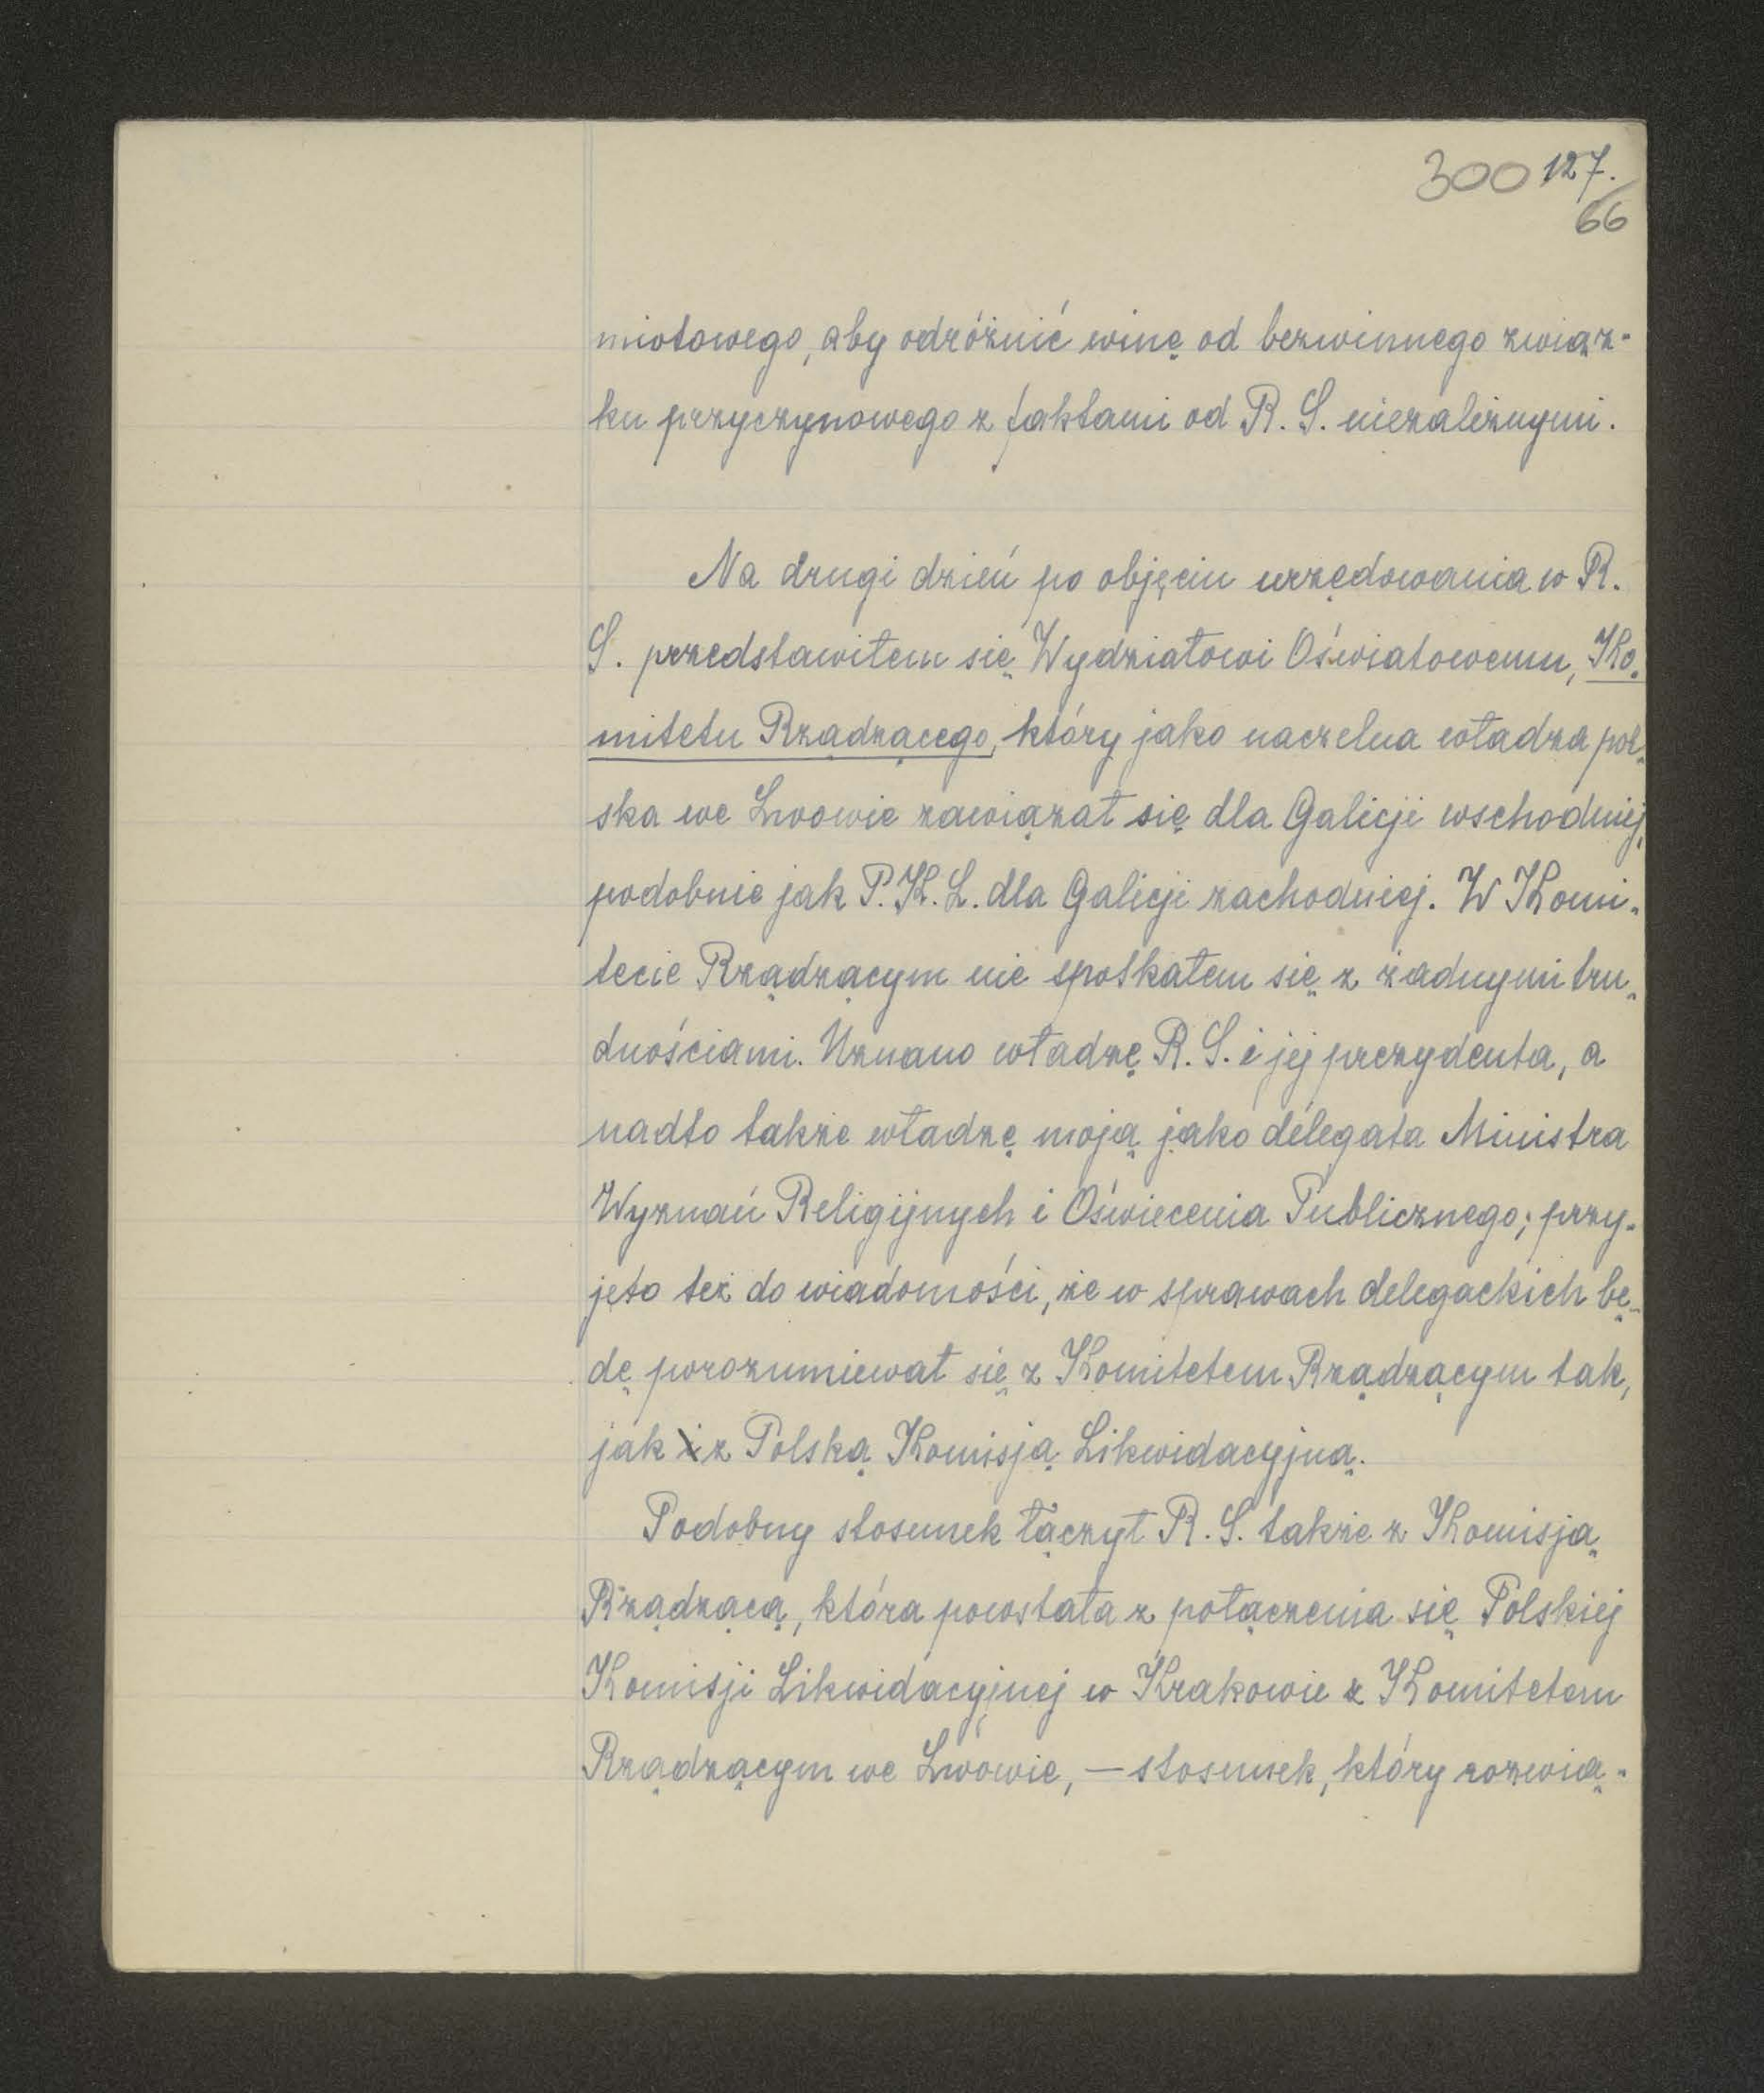 300 127.
66
miotowego, aby odróżnić winę od bezwinnego związ-
ku przyczynowego z faktami od R. S. niezależnymi.
Na drugi dzień po objęciu urzędowania w R.
S. przedstawiłem się Wydziałowi Oświatowemu, Ko-
mitetu Rządzącego, który jako naczelna władza pol-
ska we Lwowie zawiązał się dla Galicji wschodniej,
podobnie jak P. K. L. dla Galicji zachodniej. W Komi-
tecie Rządzącym nie spotkałem się z żadnymi tru-
dnościami. Uznano władzę R. S. i jej prezydenta, a
nadto także władzę moją jako delegata Ministra
Wyznań Religijnych i Oświecenia Publicznego; przy-
jęto też do wiadomości, że w sprawach delegackich bę-
dę porozumiewał się z Komitetem Rządzącym tak,
jak i z Polską Komisją Likwidacyjną.
Podobny stosunek łączył R. S. także z Komisją
Rządzącą, która powstała z połączenia się Polskiej
Komisji Likwidacyjnej w Krakowie z Komitetem
Rządzącym we Lwowie, — stosunek, który rozwią-